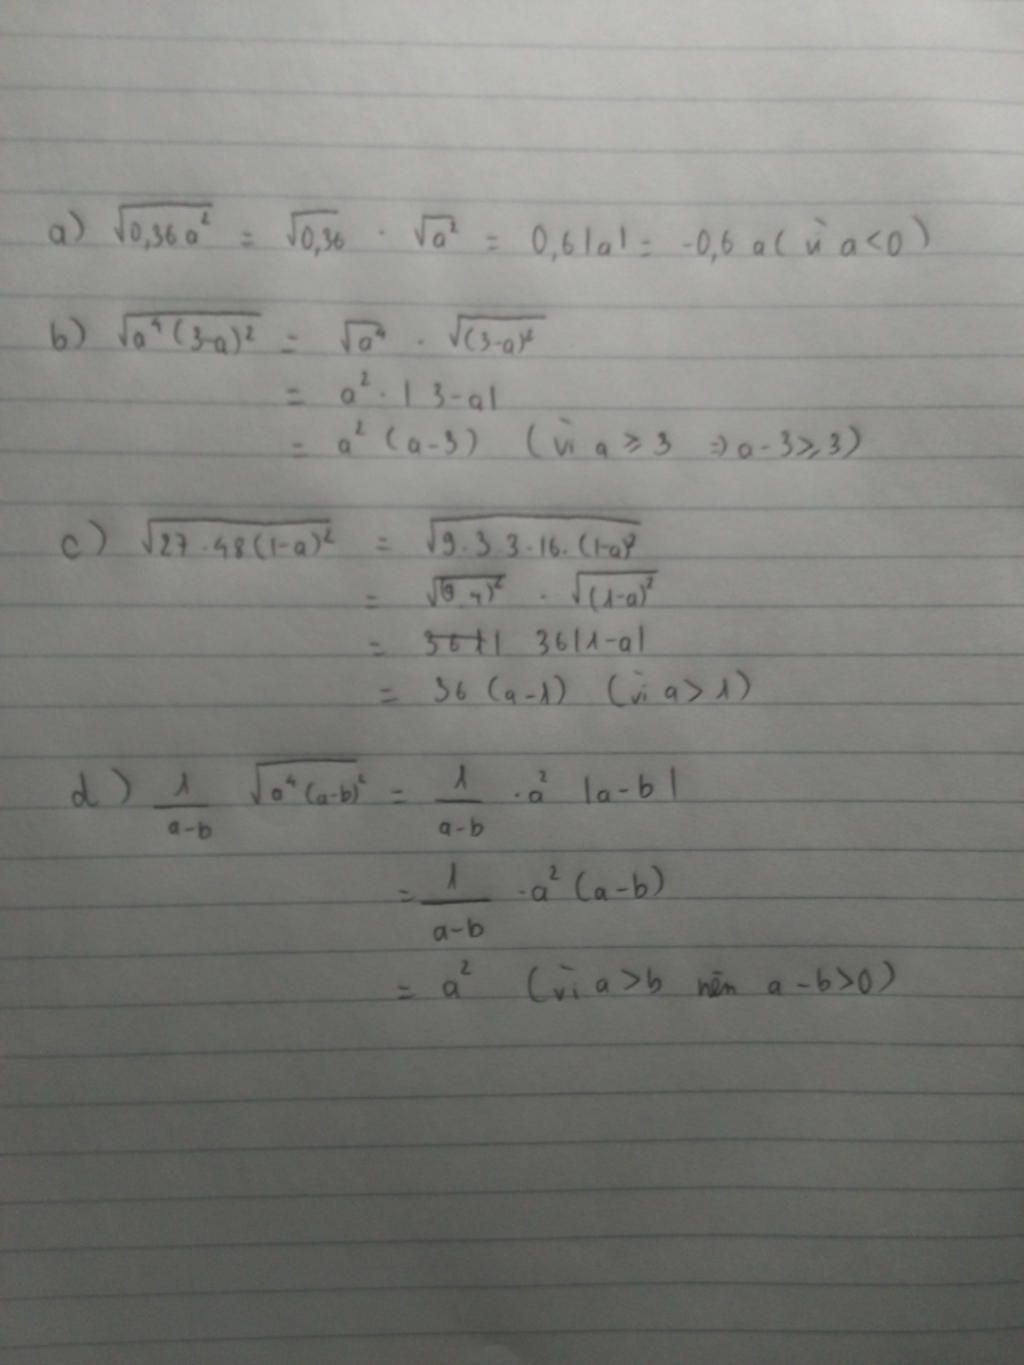 a) √0,36a² = √0,36 . √a² = 0,6|a| = -0,6 a ( vì a<0 )
b) √a⁴(3-a)² = √a⁴ . √(3-a)²
= a² . |3-a|
= a² (a-3) (vì a ⩾ 3 => a-3⩾3)
c) √27.48(1-a)² = √9.3.3.16.(1-a)²
= √(9.4)² . √(1-a)²
= 36|1-a|
= 36 (a-1) (vì a>1)
d) 1/(a-b) √a⁴(a-b)² = 1/(a-b) . a² |a-b|
= 1/(a-b) . a² (a-b)
= a² (vì a>b nên a-b>0)